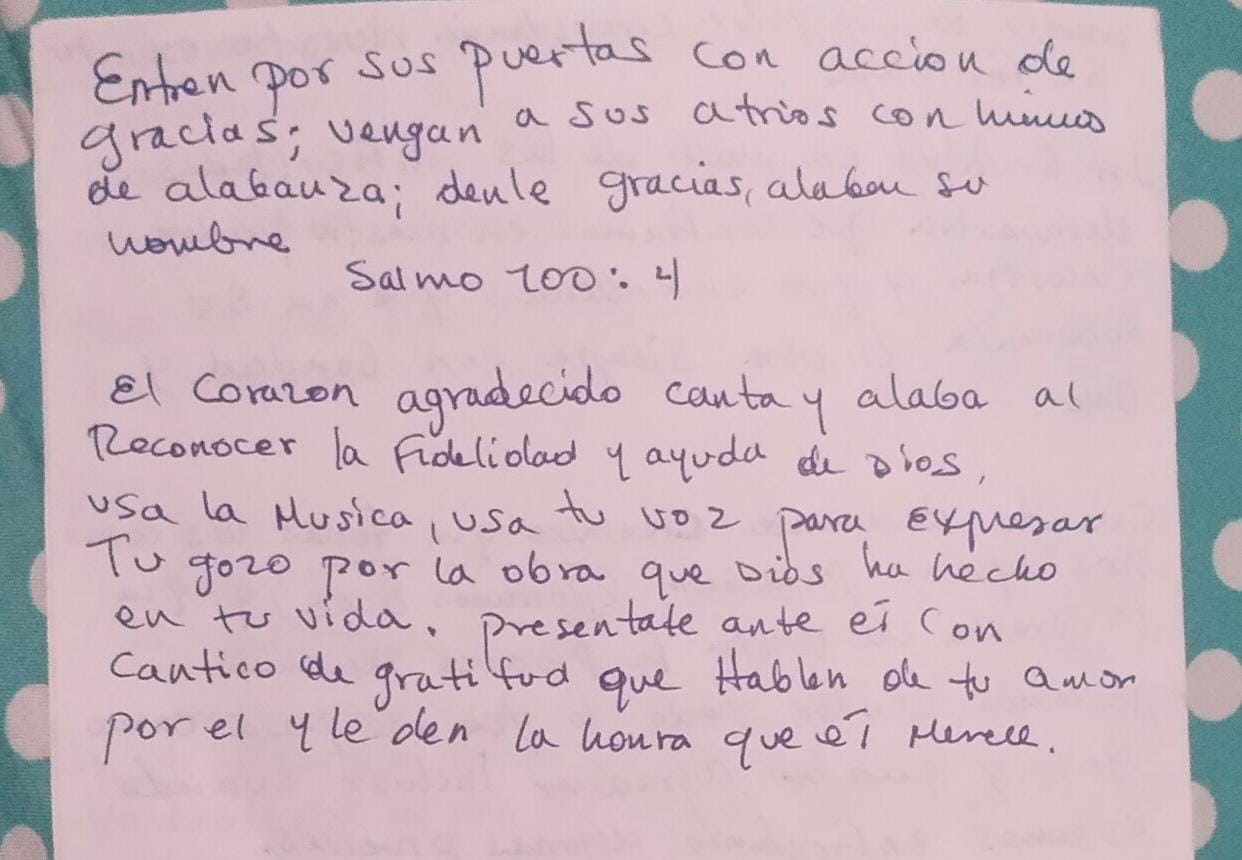 Entren por sus puertas con accion de
gracias; vengan a sus atrios con himnos
de alabanza; denle gracias, alaben su
nombre
Salmo 100:4
El Corazon agradecido canta y alaba al
Reconocer la Fidelidad y ayuda de Dios,
usa la Musica, usa tu voz para Expresar
Tu gozo por la obra que Dios ha hecho
en tu vida. presentate ante él Con
Cantico de gratitud que Hablen de tu amor
por el y le den la honra que él Merece.